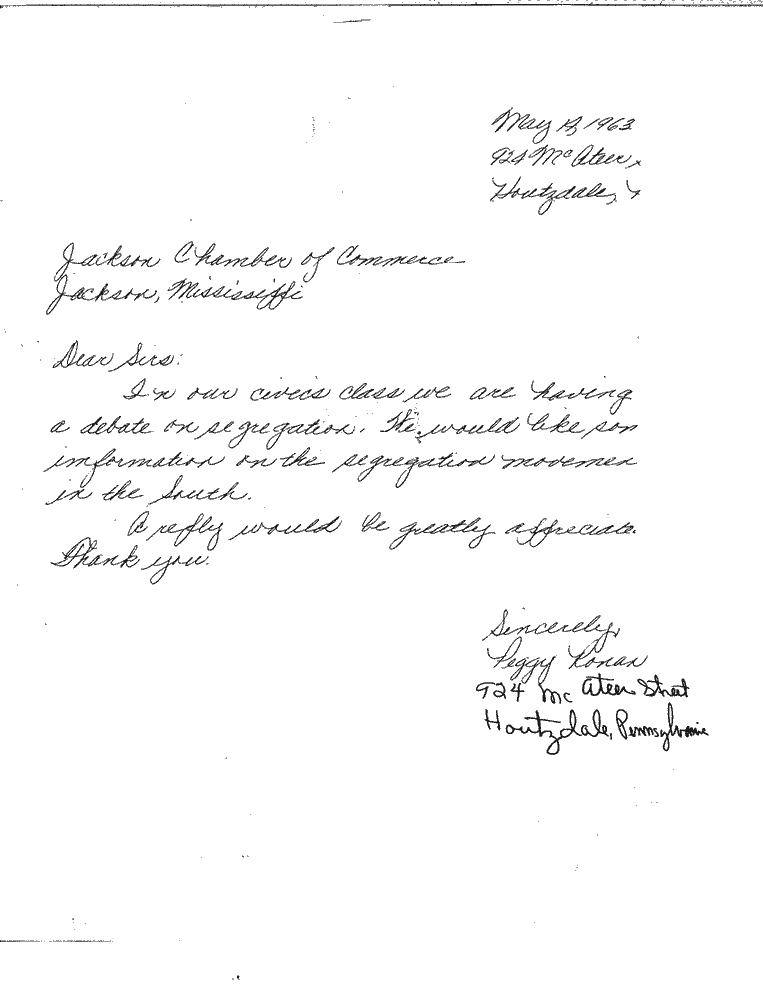 May 13, 1963
924 McAteer
Houtzdale,
Jackson Chamber of Commerce
Jackson, Mississippi
Dear Sirs:
In our civics class we are having
a debate on segregation. We would like som
information on the segregation movemen
in the South.
A reply would be greatly appreciate
Thank you.
Sincerely,
Peggy Ronan
924 McAteer Street
Houtzdale, Pennsylvania